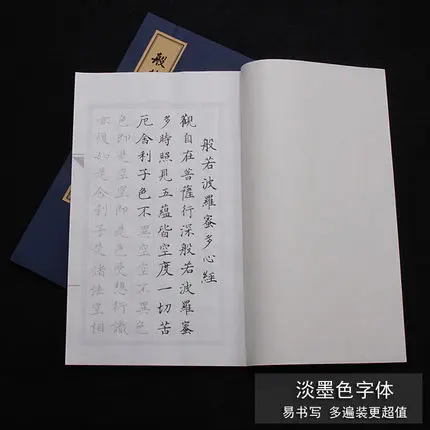 般若波羅蜜多心經
觀自在菩薩行深般若波羅蜜
多時照見五蘊皆空度一切苦
厄舍利子色不異空空不異色
色即是空空即是色受想行識
亦復如是舍利子是諸法空相
般
淡墨色字体
易书写 多遍装更超值